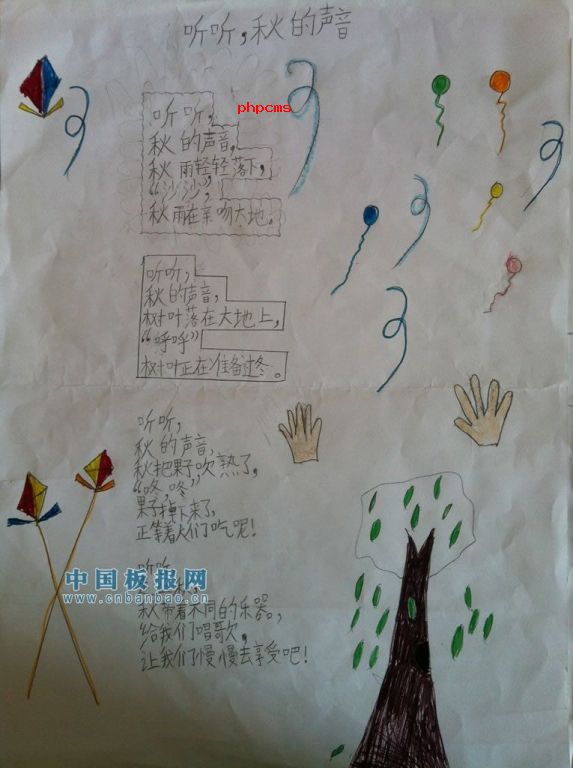 听听,秋的声音
听听,
phpcms
秋的声音,
秋雨轻轻落下,
“沙沙”,
秋雨在亲吻大地。
听听,
秋的声音,
树叶落在大地上,
“呼呼”
树叶正在准备过冬。
听听,
秋的声音,
秋把果子吹熟了,
“咚,咚”
果子掉下来了,
正等着人们了吃呢!
听听,
中国板报网
www.cnbanbao.cn
秋带着不同的乐器。
给我们唱歌,
让我们了慢慢去享受吧!